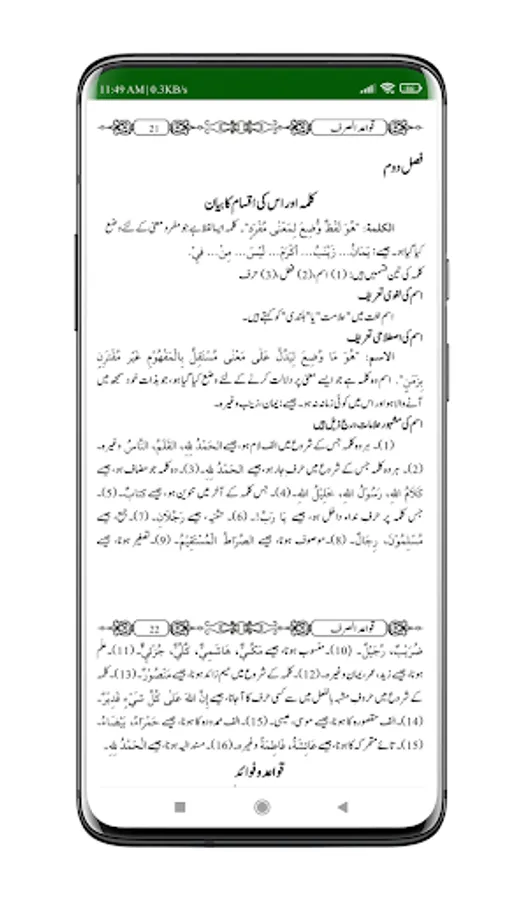 11:49 AM | 0.3KB/s
21 قواعد الصرف
فصل دوم
کلمہ اور اس کی اقسام کا بیان
الكلمة: "هُوَ لَفْظٌ وُضِعَ لِمَعْنًى مُفْرَدٍ". کلمہ ایسا لفظ ہے جو مفرد معنی کے لئے وضع
کیا گیا ہو۔ جیسے: يَمَانُ... زَيْنَبُ... أَكْرَمَ... لَيْسَ... مِنْ... فِيْ.
کلمہ کی تین قسمیں ہیں: (1) اسم، (2) فعل، (3) حرف
اسم کی لغوی تعریف
اسم لغت میں "علامت" یا "بلندی" کو کہتے ہیں۔
اسم کی اصطلاحی تعریف
الاسم: "هُوَ مَا وُضِعَ لِيَدُلَّ عَلَى مَعْنًى مُسْتَقِلٍّ بِالْمَفْهُوْمِ غَيْرَ مُقْتَرِنٍ
بِزَمَنٍ". اسم وہ کلمہ ہے جو ایسے معنی پر دلالت کرنے کے لئے وضع کیا گیا ہو، جو بذات خود سمجھ میں
آنے والا ہو اور اس میں کوئی زمانہ نہ ہو۔ جیسے: یمان، زینب وغیرہ۔
اسم کی مشہور علامات درج ذیل ہیں
(1)۔ ہر وہ کلمہ جس کے شروع میں الف لام ہو، جیسے الْحَمْدُ لِلّٰہِ، الْقَلَمُ، النَّاسُ وغیرہ۔
(2)۔ ہر وہ کلمہ جس کے شروع میں حرف جار ہو، جیسے الْحَمْدُ لِلّٰہِ۔ (3)۔ وہ کلمہ جو مضاف ہو، جیسے
كَلَامُ اللهِ، رَسُوْلُ اللهِ، خَلِيْلُ اللهِ۔ (4)۔ جس کلمہ کے آخر میں تنوین ہو، جیسے كِتَابٌ۔ (5)۔
جس کلمہ پر حرف نداء داخل ہو، جیسے يَا رَبِّ!۔ (6)۔ تثنیہ، جیسے رَجُلَانِ۔ (7)۔ جمع، جیسے
مُسْلِمُوْنَ، رِجَالٌ۔ (8)۔ موصوف ہونا، جیسے الصِّرَاطَ الْمُسْتَقِيْمَ۔ (9)۔ تصغیر ہونا، جیسے
22 قواعد الصرف
ضُرَيْبٌ، رُجَيْلٌ۔ (10)۔ منسوب ہونا، جیسے مَكِّيٌّ، هَاشِمِيٌّ، كُلِّيٌّ، جُزْئِيٌّ۔ (11)۔ علم
ہونا، جیسے زید، عمر، یمان وغیرہ۔ (12)۔ کلمہ کے شروع میں میم زائد ہونا، جیسے مَنْصُوْرٌ۔ (13)۔ کلمہ
کے شروع میں حروف مشبہ بالفعل میں سے کسی حرف کا آجانا، جیسے إِنَّ اللهَ عَلَى كُلِّ شَيْءٍ قَدِيْرٌ۔
(14)۔ الف مقصورہ کا ہونا، جیسے موسی، عیسی۔ (15)۔ الف ممدودہ کا ہونا، جیسے حَمْرَاءُ، بَيْضَاءُ۔
(15)۔ تائے متحرکہ کا ہونا، جیسے عَائِشَةُ، فَاطِمَةُ وغیرہ۔ (16)۔ مسند الیہ ہونا، جیسے الْحَمْدُ لِلّٰہِ۔
قواعد و فوائد